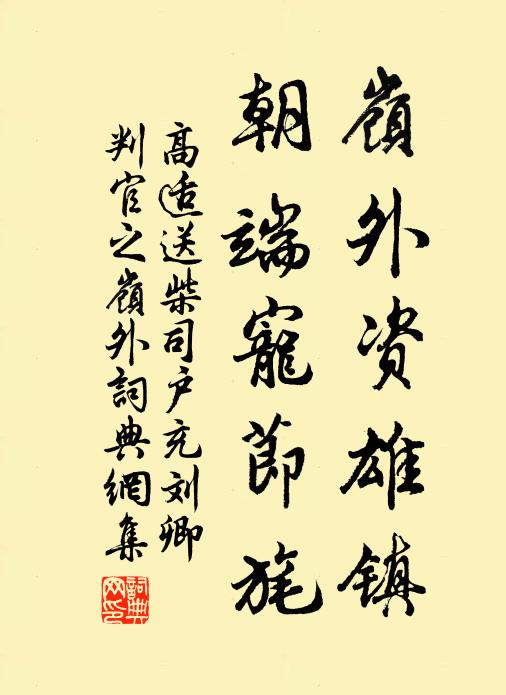 嶺外資雄镇
朝端寵節旄
高适送柴司户充刘卿
判官之嶺外詞典網集